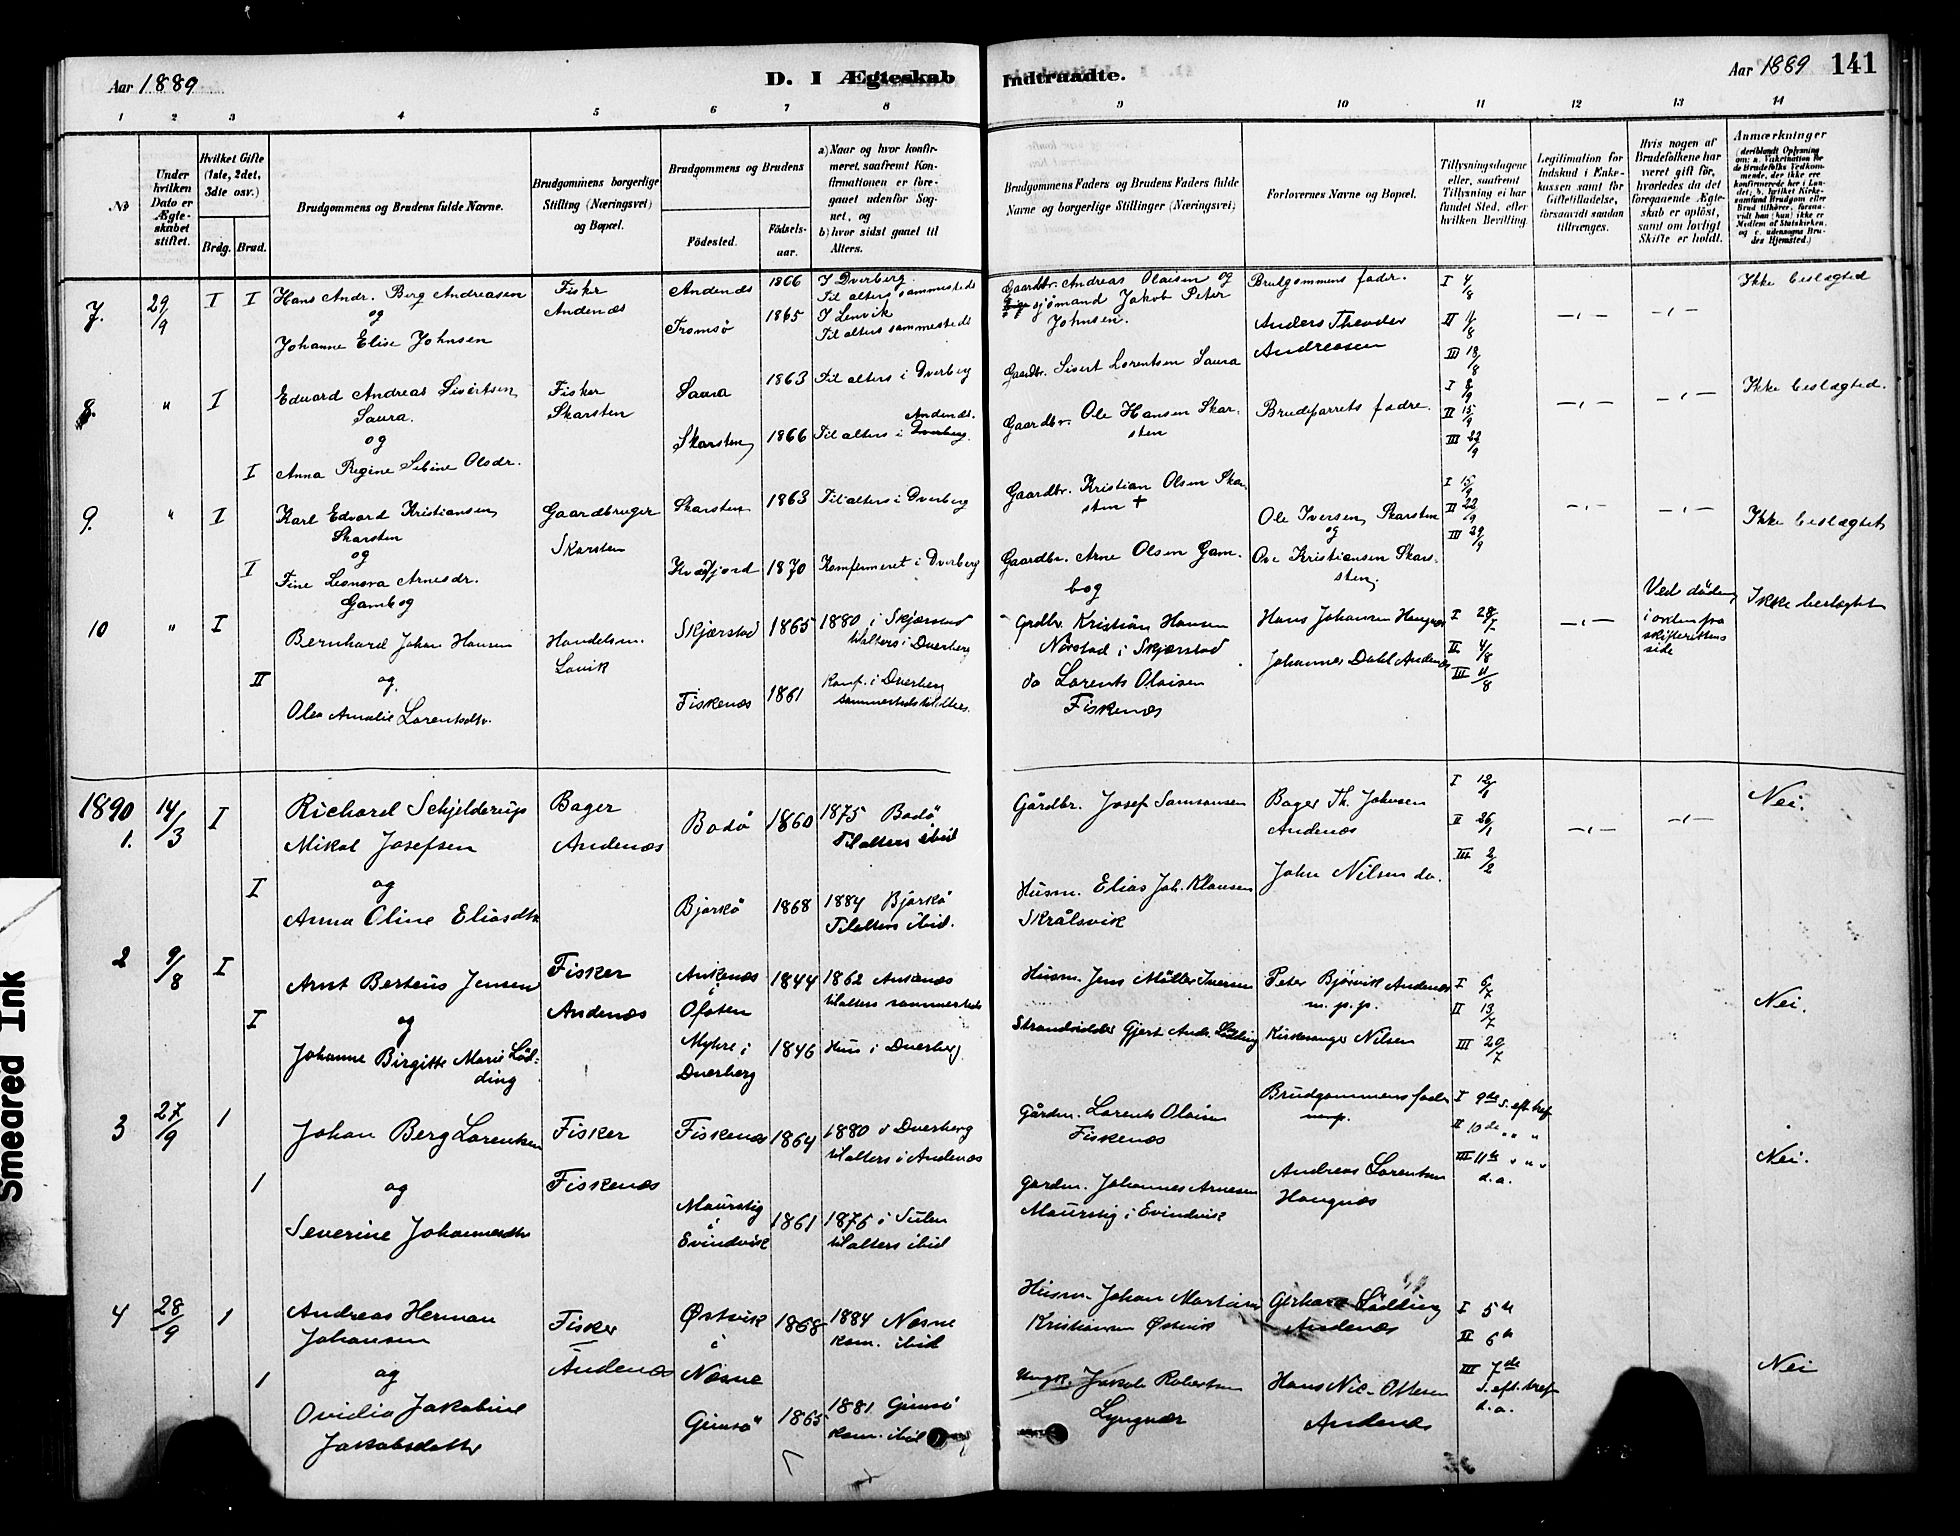 Aar 1889
D. I Ægteskab Indtraadte.
Aar 1889 141
1 2 3 4 5 6 7 8 9 10 11 12 13 14
No
Under hvilken Dato er Ægteskabet stiftet.
Hvilket Gifte (1ste, 2det, 3die osv.)
Brdg. Brud.
Brudgommens og Brudens fulde Navne.
Brudgommens borgerlige Stilling (Næringsvei) og Bopæl.
Brudgommens og Brudens
Fødested. Fødselsaar.
a) Naar og hvor konfirmeret, saafremt Konfirmationen er foregaaet udenfor Sognet, og
b) hvor sidst gaaet til Alters.
Brudgommens Faders og Brudens Faders fulde Navne og borgerlige Stillinger (Næringsvei)
Forlovernes Navne og Bopæl.
Tillysningsdagene eller, saafremt Tillysning ei har fundet Sted, efter hvilken Bevilling.
Legitimation for Indskud i Enkekassen samt for Giftetilladelse, forsaavidt saadan tiltrænges.
Hvis nogen af Brudefolkene har været gift før, hvorledes da det foregaaende Ægteskab er opløst, samt om lovligt Skifte er holdt.
Anmærkninger
7. 29/9 I I
Hans Andr. Berg Andreasen
og
Johanne Elise Johnsen
Fisker
Andenæs
Andenæs 1866
I Dverberg
Til alters sammesteds
Tromsø 1865
I Lenvik
Til alters sammesteds
Gaardbr. Andreas Olaisen og
sjømand Jakob Peter
Johnsen.
Brudgommens fader.
Anders Theodor
Andreasen
I 4/8
II 11/8
III 18/8
Ikke beslægted
8. " I
Edvard Andreas Sivertsen
Saura.
og
I
Anna Regine Sebine Olsdr.
Fisker
Skarsten
Saura 1863 Til alters i Dverberg
Andenæs.
Skarsten 1866 Til alters i Dverberg.
Gaardbr. Sivert Lorentsen Saura
Gaardbr. Ole Hansen Skarsten
Brudeparrets fædre.
I 8/9
II 15/9
III 22/9
Ikke beslægted.
9. " I
Karl Edvard Kristiansen
Skarsten
og
I
Fine Leonora Arnesdr.
Gambog
Gaardbruger
Skarsten
Skarsten 1863 Til alters i Dverberg
Kvæfjord 1870 Konfirmeret i Dverberg
Gaardbr. Kristian Olsen Skarsten +
Gaardbr. Arne Olsen Gambog
Ole Iversen Skarsten
og
Ove Kristiansen Skarsten.
I 15/9
II 22/9
III 29/9
Ikke beslægtet
10 " I
Bernhard Johan Hansen
II og
Olea Amalie Lorentsdtr.
Handelsm.
Lovik
Skjærstad 1865
1880 i Skjærstad
til alters i Dverberg
Fiskenæs 1861
Konf. i Dverberg
sammesteds til alters.
Grdbr. Kristian Hansen
Nørstad i Skjærstad
do Lorents Olaisen
Fiskenæs
Hans Johansen Haugnæs
Johannes Dahl Andenæs
I 28/7
II 4/8
III 11/8
Ved døden,
i orden fra
skifterettens
side
Ikke beslægtet
1890
1. 14/3 I
Richard Schjelderup
Mikal Josefsen
I og
Anna Oline Eliasdtr
Bager
Andenæs
Bodø 1860
1875 Bodø
Til alters ibid
Bjarkø 1868
1884 Bjarkø
Til alters ibid.
Gårdbr. Josef Samsonsen
Husm. Elias Joh. Klausen
Skrålsvik
Bager Th. Johnsen
Andenæs
John Nilsen do.
I 12/1
II 26/1
III 2/2
Nei.
2 9/8 I
Arnt Berteus Jensen
I og
Johanne Birgitte Marie Lødding
Fisker
Andenæs
Ankenæs
i
Ofoten 1844
1862 Ankenæs
til alters sammesteds
Myhre i
Dverberg 1846
Hun i Dverberg.
Husm. Jens Møller Iversen
Strandsidder Gjert Andr. Lødding
Peter Bjørvik Andenæs
m. p. p.
Kirkesanger Nilsen
I 6/7
II 13/7
III 20/7
Nei.
3 27/9 1
Johan Berg Lorentsen
1 og
Severine Johannesdtr
Fisker
Fiskenæs
Fiskenæs 1864
1880 i Dverberg
til alters i Andenæs
Maurstig
i
Evindvik 1861
1876 i Sulen
til alters ibid
Gårdm. Lorents Olaisen
Fiskenæs
Gårdm. Johannes Arnesen
Maurstig i Evindvik
Brudgommens fader
Andreas Lorentsen
Haugnæs
I 9de S. eft. tref.
II 10de " "
III 11te " " "
d. a.
Nei.
4 28/9 1
Andreas Herman
Johansen
1 og
Ovidia Jakobine
Jakobsdatter
Fisker
Andenæs
Østvik
i
Næsne 1868
1884 Næsne
kom. ibid
Gimsø 1865
1881 Gimsø
kom. ibid
Husm. Johan Martin
Kristiansen Østvik
Ungk. Jakob Robertsen
Lyngvær
Gerhard Lødding
Andenæs
Hans Nic. Ottesen
Andenæs
I 5te
II 6te
III 7de
S. eft. tref.
d. a.
Nei
Smeared Ink